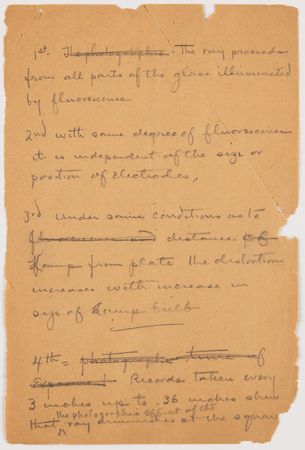 1st - The photographic - The ray proceeds
from all parts of the glass illuminated
by fluorescence
2nd with same degree of fluorescence
it is independent of the size or
position of Electrodes,
3rd under same conditions as to
fluorescence and distance of
Lamp from plate the distortion
increases with increase in
size of Lamp bulb
4th = photographic time of
exposure! Records taken every
3 inches up to 36 inches shew
the photographic effect of the
that ray diminishes as the square